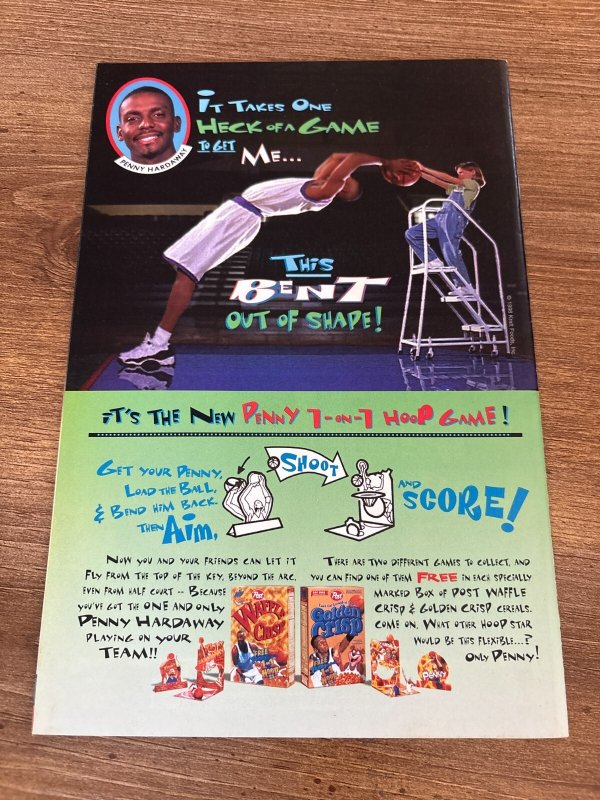 IT TAKES ONE
HECK OF A GAME
TO GET
ME...
PENNY HARDAWAY
THIS
BENT
OUT OF SHAPE!
© 1996 Kraft Foods, Inc.
IT'S THE NEW PENNY 1-ON-1 HOOP GAME!
GET YOUR PENNY,
LOAD THE BALL,
& BEND HIM BACK.
THEN AIM,
SHOOT
AND
SCORE!
NOW YOU AND YOUR FRIENDS CAN LET IT
FLY FROM THE TOP OF THE KEY, BEYOND THE ARC,
EVEN FROM HALF COURT -- BECAUSE
YOU'VE GOT THE ONE AND ONLY
PENNY HARDAWAY
PLAYING ON YOUR
TEAM!!
THERE ARE TWO DIFFERENT GAMES TO COLLECT, AND
YOU CAN FIND ONE OF THEM FREE IN EACH SPECIALLY
MARKED BOX OF POST WAFFLE
CRISP & GOLDEN CRISP CEREALS.
COME ON, WHAT OTHER HOOP STAR
WOULD BE THIS FLEXIBLE...?
ONLY PENNY!
Post
WAFFLE
CRISP
Post
Golden
CRISP
PENNY